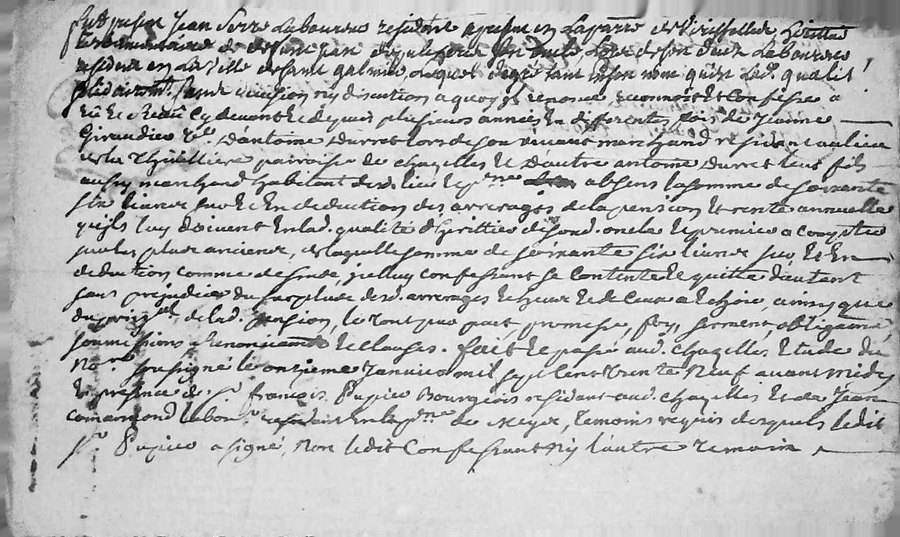 fut present Jean Serre Laboureur residant a present en La parroisse de Virissellas heritier
testamentaire de deffunt Jean Serre son oncle Laboureur
residant en la Ville de saint galmier, Lequel degré tant en son nom qu'en lad. qualité
sans division ny discution a quoy il renonce, reconnoist et Confesse a
Eu et Receu Cy devant et depuis plusieurs années En differentes fois de Jeanne
Giraudier ve. D'antoine Durret lors de son vivant marchand residant au lieu
de la Thuilliere parroisse de chazelles et d'autre antoine Durret leur fils
aussy marchand habitant dud. lieu et pnt. absens la somme de soixante
six livres sur et En deduction des arrerages de la pension et rente annuelle
qu'ils luy doivent En lad. qualité d'heritier de sond. oncle et le premier a compter
sur les plus anciens, de laquelle somme de soixante six livres sur et En
deduction comme dessus, led. Confessant se contente et quitte d'autant
sans prejudice du surplus desd. arrerages escheus et de Ceux a echoir, ainsy que
du prinal. de lad. pension, le tout par pact promesse, foy, serment, obligaons
soumissions renonciaons et clauses. fait et passé aud. chazelles Etude du
Nore. soussigné le onzieme Janvier mil sept Cent Trente Neuf avant midy
En presence de sr. François Pupier Bourgeois residant aud. chazelles et de Jean
Comarmond labour. residant En la pne. de Meys, temoins requis desquels ledit
sr. Pupier a signé, Non ledit Confessant Ny l'autre temoin